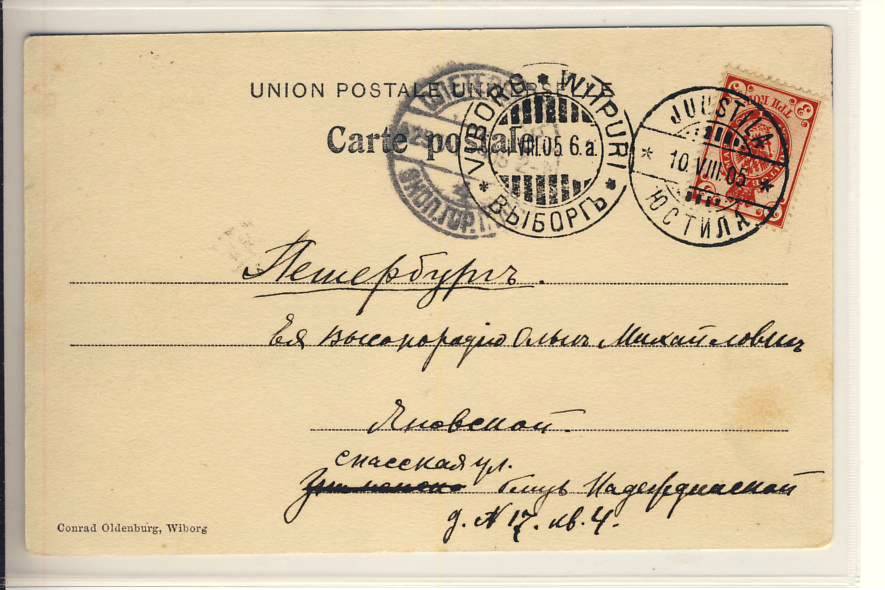 UNION POSTALE UNIVERSELLE
Carte postale
VIBORG * WIIPURI * ВЫБОРГЪ *
VIII.05 6.a.
JUUSTILA
* 10.VIII.05 *
ЮСТИЛА
3 ТРИ КОП 3
Петербургъ.
Ея Высокородію Ольгѣ Михайловнѣ
Яновской.
Спасская ул.
близъ Надеждинской
д. N 17. кв. 4.
Conrad Oldenburg, Wiborg